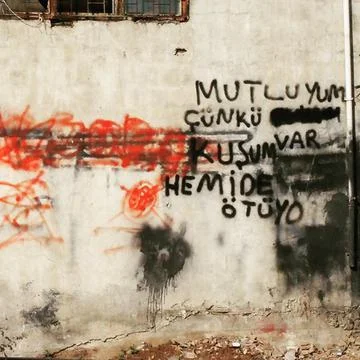 MUTLUYUM
ÇÜNKÜ
KUŞUM VAR
HEMİDE
ÖTÜYO